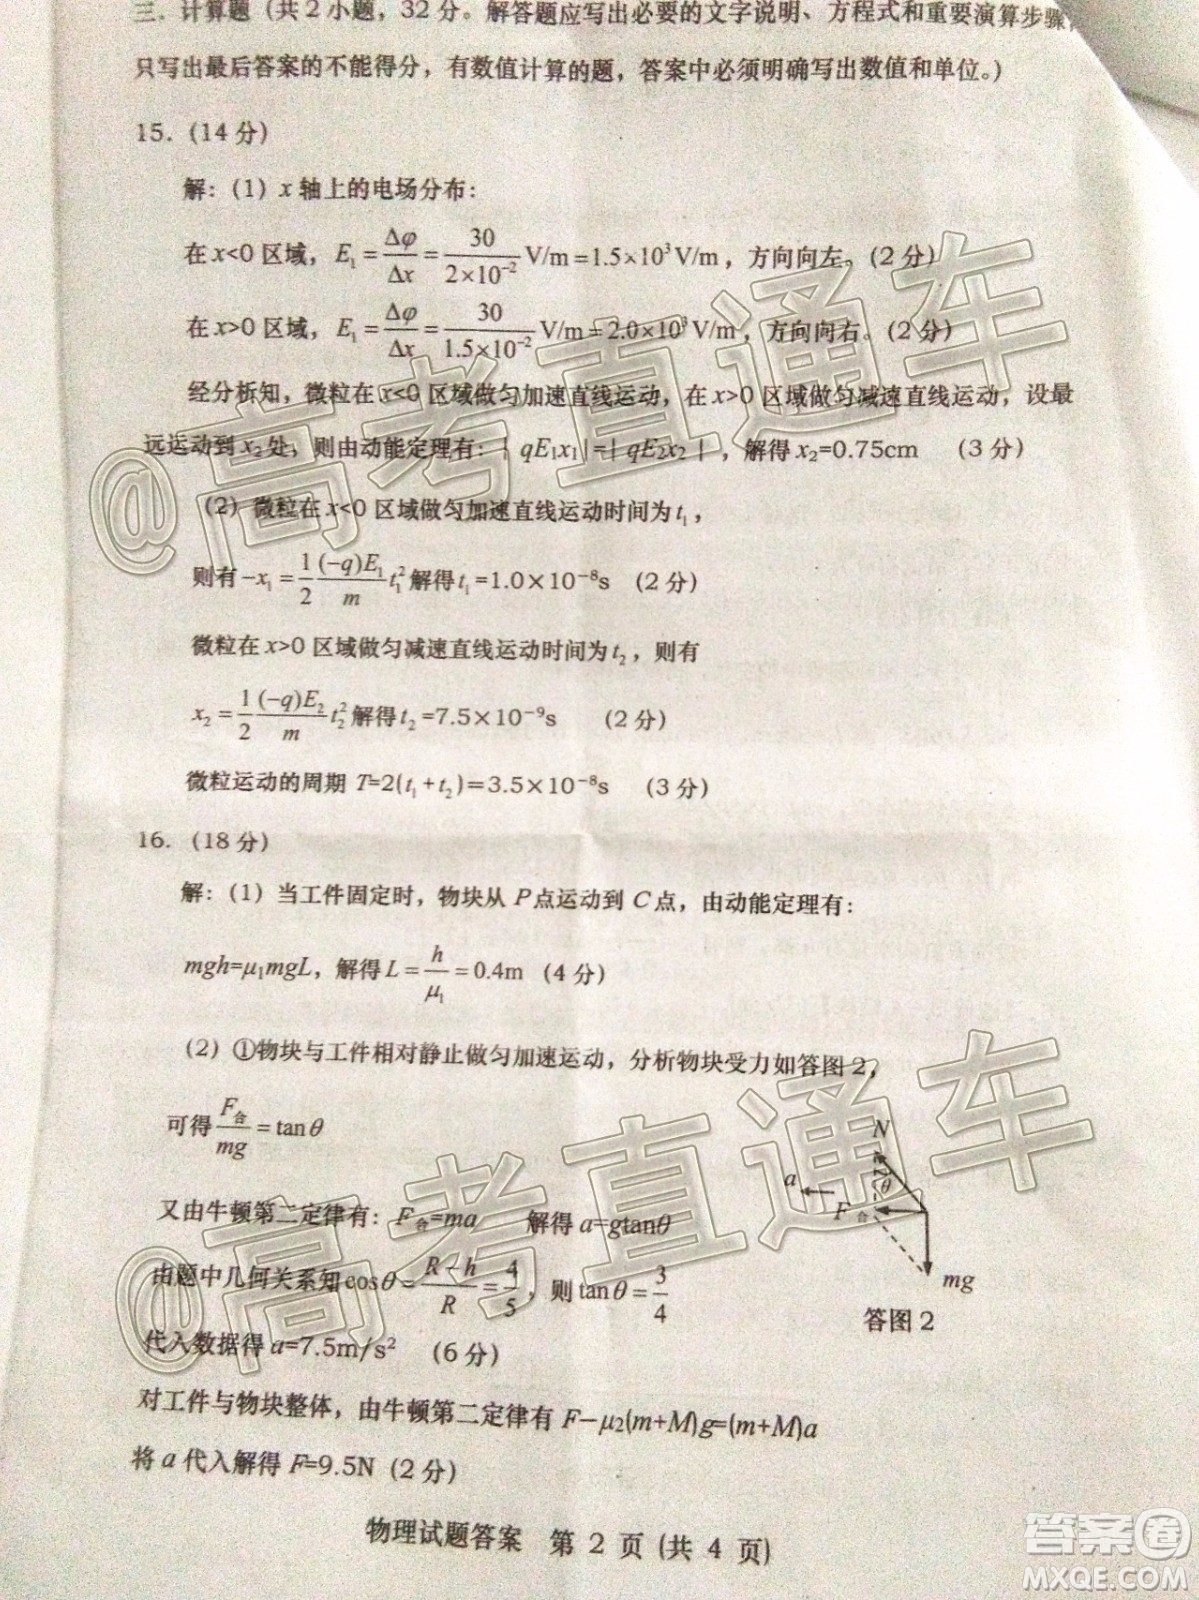 三. 计算题（共2小题，32分。解答题应写出必要的文字说明、方程式和重要演算步骤，
只写出最后答案的不能得分，有数值计算的题，答案中必须明确写出数值和单位。）
15.（14分）
解：（1）x 轴上的电场分布：
在 x<0 区域，E₁=Δφ/Δx=30/(2×10⁻²) V/m=1.5×10³V/m，方向向左。(2分)
在 x>0 区域，E₁=Δφ/Δx=30/(1.5×10⁻²) V/m=2.0×10³V/m，方向向右。(2分)
经分析知，微粒在 x<0 区域做匀加速直线运动，在 x>0 区域做匀减速直线运动，设最
远运动到 x₂处，则由动能定理有：| qE₁x₁|=| qE₂x₂ |，解得 x₂=0.75cm （3分）
（2）微粒在 x<0 区域做匀加速直线运动时间为 t₁，
则有 −x₁=1/2 (−q)E₁/m t₁² 解得 t₁=1.0×10⁻⁸s （2分）
微粒在 x>0 区域做匀减速直线运动时间为 t₂，则有
x₂=1/2 (−q)E₂/m t₂² 解得 t₂=7.5×10⁻⁹s （2分）
微粒运动的周期 T=2(t₁+t₂)=3.5×10⁻⁸s （3分）
16.（18分）
解：（1）当工件固定时，物块从 P点运动到 C 点，由动能定理有：
mgh=μ₁mgL，解得 L=h/μ₁=0.4m （4分）
（2）①物块与工件相对静止做匀加速运动，分析物块受力如答图 2，
可得 F合/mg=tanθ
又由牛顿第二定律有：F合=ma 解得 a=gtanθ
由题中几何关系知 cosθ=(R−h)/R=4/5，则 tanθ=3/4
代入数据得 a=7.5m/s² （6分）
N
θ
a
F合
mg
答图 2
对工件与物块整体，由牛顿第二定律有 F−μ₂(m+M)g=(m+M)a
将 a 代入解得 F=9.5N（2分）
物理试题答案 第 2 页 (共 4 页)
@高考直通车
@高考直通车
答案圈
MXQE.COM